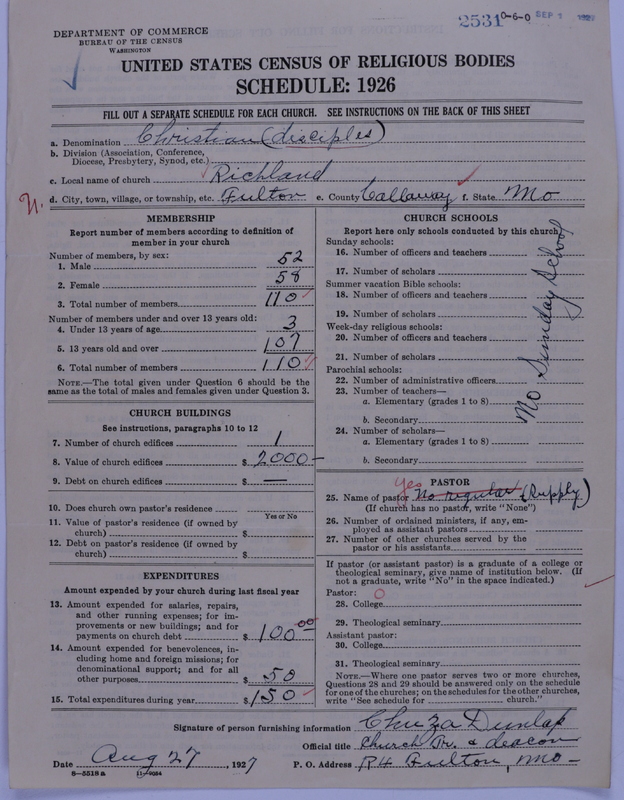 2531 0-6-0 SEP 1 1927
DEPARTMENT OF COMMERCE
BUREAU OF THE CENSUS
WASHINGTON
UNITED STATES CENSUS OF RELIGIOUS BODIES
SCHEDULE: 1926
FILL OUT A SEPARATE SCHEDULE FOR EACH CHURCH. SEE INSTRUCTIONS ON THE BACK OF THIS SHEET
a. Denomination Christian (disciples)
b. Division (Association, Conference,
Diocese, Presbytery, Synod, etc.)
c. Local name of church Richland
d. City, town, village, or township, etc. Fulton e. County Callaway f. State Mo
MEMBERSHIP
Report number of members according to definition of
member in your church
Number of members, by sex:
1. Male 52
2. Female 58
3. Total number of members 110
Number of members under and over 13 years old:
4. Under 13 years of age 3
5. 13 years old and over 107
6. Total number of members 110
NOTE.—The total given under Question 6 should be the
same as the total of males and females given under Question 3.
CHURCH BUILDINGS
See instructions, paragraphs 10 to 12
7. Number of church edifices 1
8. Value of church edifices $ 2000–
9. Debt on church edifices $ —
10. Does church own pastor's residence
Yes or No
11. Value of pastor's residence (if owned by
church) $
12. Debt on pastor's residence (if owned by
church) $
EXPENDITURES
Amount expended by your church during last fiscal year
13. Amount expended for salaries, repairs,
and other running expenses; for im-
provements or new buildings; and for
payments on church debt $ 100 00
14. Amount expended for benevolences, in-
cluding home and foreign missions; for
denominational support; and for all
other purposes $ 50
15. Total expenditures during year $ 150
CHURCH SCHOOLS
Report here only schools conducted by this church
Sunday schools:
16. Number of officers and teachers
17. Number of scholars
Summer vacation Bible schools:
18. Number of officers and teachers
19. Number of scholars
Week-day religious schools:
20. Number of officers and teachers
21. Number of scholars
Parochial schools:
22. Number of administrative officers
23. Number of teachers—
a. Elementary (grades 1 to 8)
b. Secondary
24. Number of scholars—
a. Elementary (grades 1 to 8)
b. Secondary
No Sunday School
PASTOR
yes
25. Name of pastor No regular (Supply)
(If church has no pastor, write "None")
26. Number of ordained ministers, if any, em-
ployed as assistant pastors
27. Number of other churches served by the
pastor or his assistants
If pastor (or assistant pastor) is a graduate of a college or
theological seminary, give name of institution below. (If
not a graduate, write "No" in the space indicated.)
Pastor: O
28. College
29. Theological seminary
Assistant pastor:
30. College
31. Theological seminary
NOTE.—Where one pastor serves two or more churches,
Questions 28 and 29 should be answered only on the schedule
for one of the churches; on the schedules for the other churches,
write "See schedule for church."
Signature of person furnishing information Dunlap
Official title Church & deacon
Date Aug 27, 1927 P. O. Address R4 Fulton, Mo–
8—5518a 11—9094